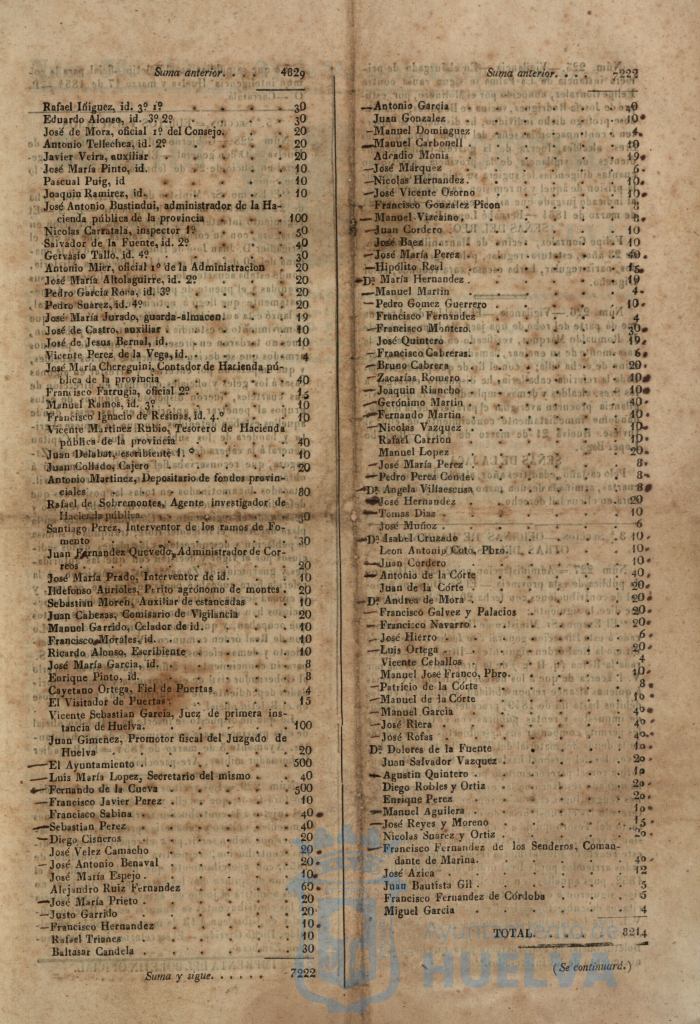 Suma anterior. . . . 4629
Rafael Iñiguez, id. 3º 1º . . . 30
Eduardo Alonso, id. 3º 2º . . . 30
José de Mora, oficial 1º del Consejo. . . 20
Antonio Tellechea, id. 2º . . . 20
Javier Veira, auxiliar . . . 20
José María Pinto, id. . . . 10
Pascual Puig, id . . . 10
Joaquin Ramirez, id. . . . 10
José Antonio Bustindui, administrador de la Ha-
cienda pública de la provincia . . . 100
Nicolas Carratala, inspector 1º . . . 50
Salvador de la Fuente, id. 2º . . . 40
Gervasio Tallo, id. 4º . . . 30
Antonio Mier, oficial 1º de la Administracion 20
José María Altolaguirre, id. 2º . . . 20
Pedro Garcia Rona, id. 3º . . . 20
Pedro Suarez, id. 4º . . . 20
José María Jurado, guarda-almacen. . . 19
José de Castro, auxiliar . . . 10
José de Jesus Bernal, id. . . . 10
Vicente Perez de la Vega, id. . . . 4
José María Chereguini, Contador de Hacienda pú-
blica de la provincia . . . 40
Francisco Fatrugia, oficial 2º . . . 15
Manuel Ramos, id. 3º . . . 10
Francisco Ignacio de Resinas, id. 4.º . . . 10
Vicente Martinez Rubio, Tesorero de Hacienda
pública de la provincia . . . 40
Juan Delabat, escribiente 1.º . . . 10
Juan Collado, Cajero . . . 20
Antonio Martinez, Depositario de fondos provin-
ciales . . . 80
Rafael de Sobremontes, Agente investigador de
Hacienda pública. . . . 30
Santiago Perez, Interventor de los ramos de Fo-
mento . . . 30
Juan Fernandez Quevedo, Administrador de Cor-
reos . . . 20
José María Prado, Interventor de id. . . . 10
Ildefonso Aurioles, Perito agrónomo de montes . 20
Sebastian Moren, Auxiliar de estancadas . . 10
Juan Cabezas, Comisario de Vigilancia . . 20
Manuel Garrido, Celador de id. . . . 10
Francisco Morales, id. . . . 10
Ricardo Alonso, Escribiente . . . 10
José María Garcia, id. . . . 8
Enrique Pinto, id. . . . 8
Cayetano Ortega, Fiel de Puertas . . . 4
El Visitador de Puertas . . . 15
Vicente Sebastian Garcia, Juez de primera ins-
tancia de Huelva. . . . 100
Juan Gimenez, Promotor fiscal del Juzgado de
Huelva . . . 20
—El Ayuntamiento . . . 500
—Luis María Lopez, Secretario del mismo . . 40
—Fernando de la Cueva . . . 500
—Francisco Javier Perez . . . 10
Francisco Sabina . . . 40
—Sebastian Perez . . . 40
—Diego Cisneros . . . 20
José Velez Camacho . . . 20
—José Antonio Benaval . . . 20
José María Espejo . . . 10
Alejandro Ruiz Fernandez . . . 60
—José María Prieto . . . 20
—Justo Garrido . . . 20
—Francisco Hernandez . . . 10
Rafael Trianes . . . 10
Baltasar Candela . . . 30
Suma y sigue. . . . . . 7222
Suma anterior. . . . 7222
—Antonio Garcia . . . 40
Juan Gonzalez . . . 10
—Manuel Dominguez . . . 4
—Manuel Carbonell . . . 10
Adradio Monis . . . 19
—José Márquez . . . 6
—Nicolas Hernandez . . . 10
—José Vicente Osorno . . . 10
—Francisco Gonzalez Picon . . . 8
—Manuel Vizcaino . . . 8
—Juan Cordero . . . 10
José Baez . . . 10
—José María Perez . . . 40
—Hipólito Real . . . 15
—Dª María Hernandez . . . 19
—Manuel Martin . . . 4
—Pedro Gomez Guerrero . . . 10
Francisco Fernandez . . . 4
—Francisco Montero . . . 30
José Quintero . . . 19
—Francisco Cabreras . . . 6
—Bruno Cabrera . . . 20
—Zacarías Romero . . . 10
—Joaquin Riancho . . . 40
—Gerónimo Martin . . . 40
—Fernando Martin . . . 10
—Nicolas Vazquez . . . 10
Rafael Carrion . . . 10
Manuel Lopez . . . 20
—José María Perez . . . 8
—Pedro Perez Conde . . . 8
—Dª Angela Villaescusa . . . 8
—José Hernandez . . . 20
—Tomas Dias . . . 10
José Muñoz . . . 6
—Dª Isabel Cruzado . . . 10
Leon Antonio Coto, Pbro. . . . 10
—Juan Cordero . . . 10
—Antonio de la Córte . . . 40
Juan de la Córte . . . 20
—Dª Andrea de Mora . . . 20
—Francisco Galvez y Palacios . . . 20
—Francisco Navarro . . . 20
—José Hierro . . . 6
—Luis Ortega . . . 20
Vicente Ceballos . . . 4
Manuel José Franco, Pbro. . . . 10
—Patricio de la Córte . . . 8
—Manuel de la Córte . . . 10
—Manuel Garcia . . . 40
—José Riera . . . 40
—José Rofas . . . 40
Dª Dolores de la Fuente . . . 10
Juan Salvador Vazquez . . . 20
—Agustin Quintero . . . 10
Diego Robles y Ortiz . . . 20
Enrique Perez . . . 20
—Manuel Aguilera . . . 10
—José Reyes y Moreno . . . 15
Nicolas Suarez y Ortiz . . . 20
—Francisco Fernandez de los Senderos, Coman-
dante de Marina. . . . 40
José Azica . . . 12
Juan Bautista Gil . . . 5
Francisco Fernandez de Córdoba . . . 5
Miguel Garcia . . . 4
TOTAL. 8214
(Se continuará.)
Ayuntamiento de
HUELVA